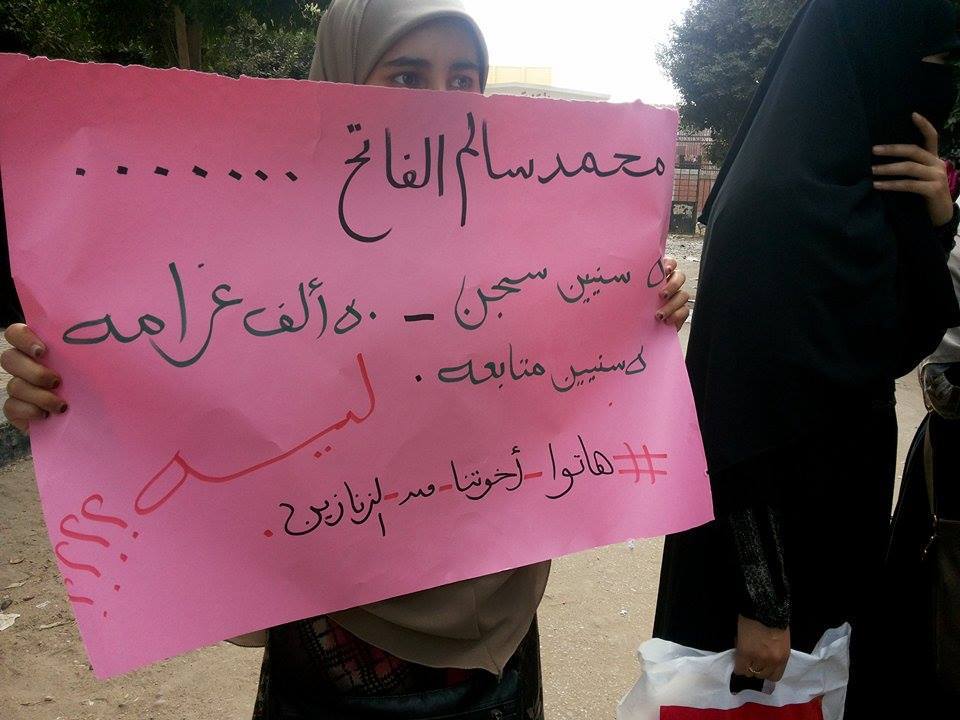 محمد سالم الفاتح ........
٥ سنين سجن - ٥٠ ألف غرامه
٥ سنيين متابعه .
ليه ؟؟؟؟؟
#هاتوا-أخوتنا-من-الزنازين.